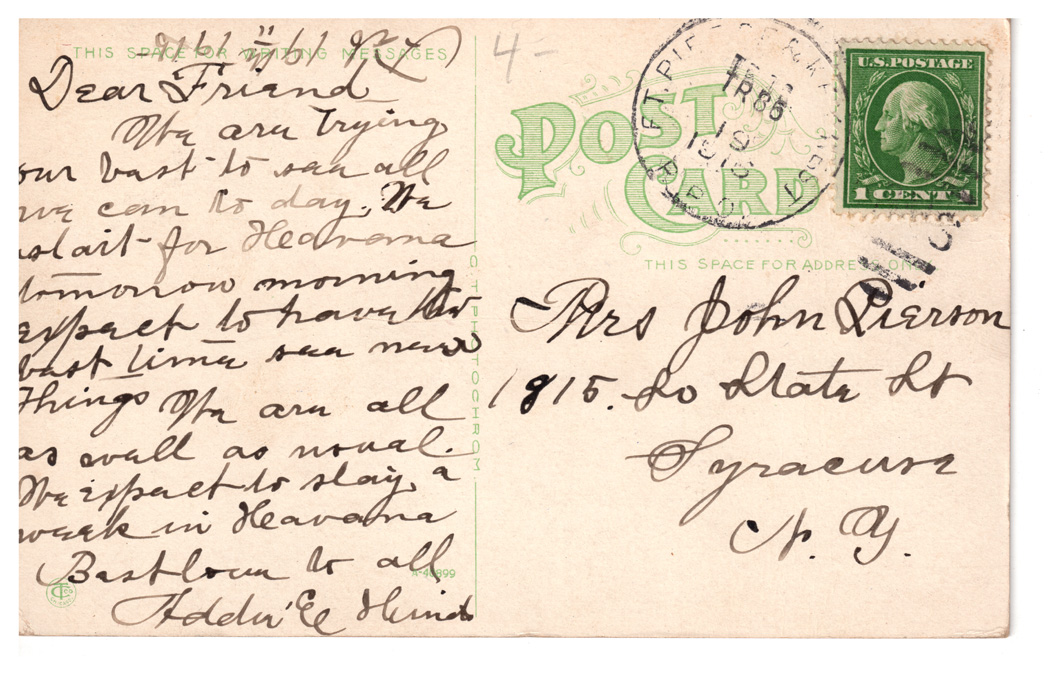 THIS SPACE FOR WRITING MESSAGES
Dear Friend
We are trying
our best to see all
we can to day. We
start for Heavana
tomorrow morning
expect to have the
best time see new
Things We are all
as well as usual.
We expect to stay a
week in Heavana
Best love to all
Addie E
A-40899
C.T. PHOTOCHROM
4-
POST CARD
FT. PIERCE & KEY WEST
TR 85
19
1916
R.P.O.
U.S. POSTAGE
1 CENT 1
THIS SPACE FOR ADDRESS ONLY
Mrs John Pierson
1815. So State St
Syracuse
N. Y.